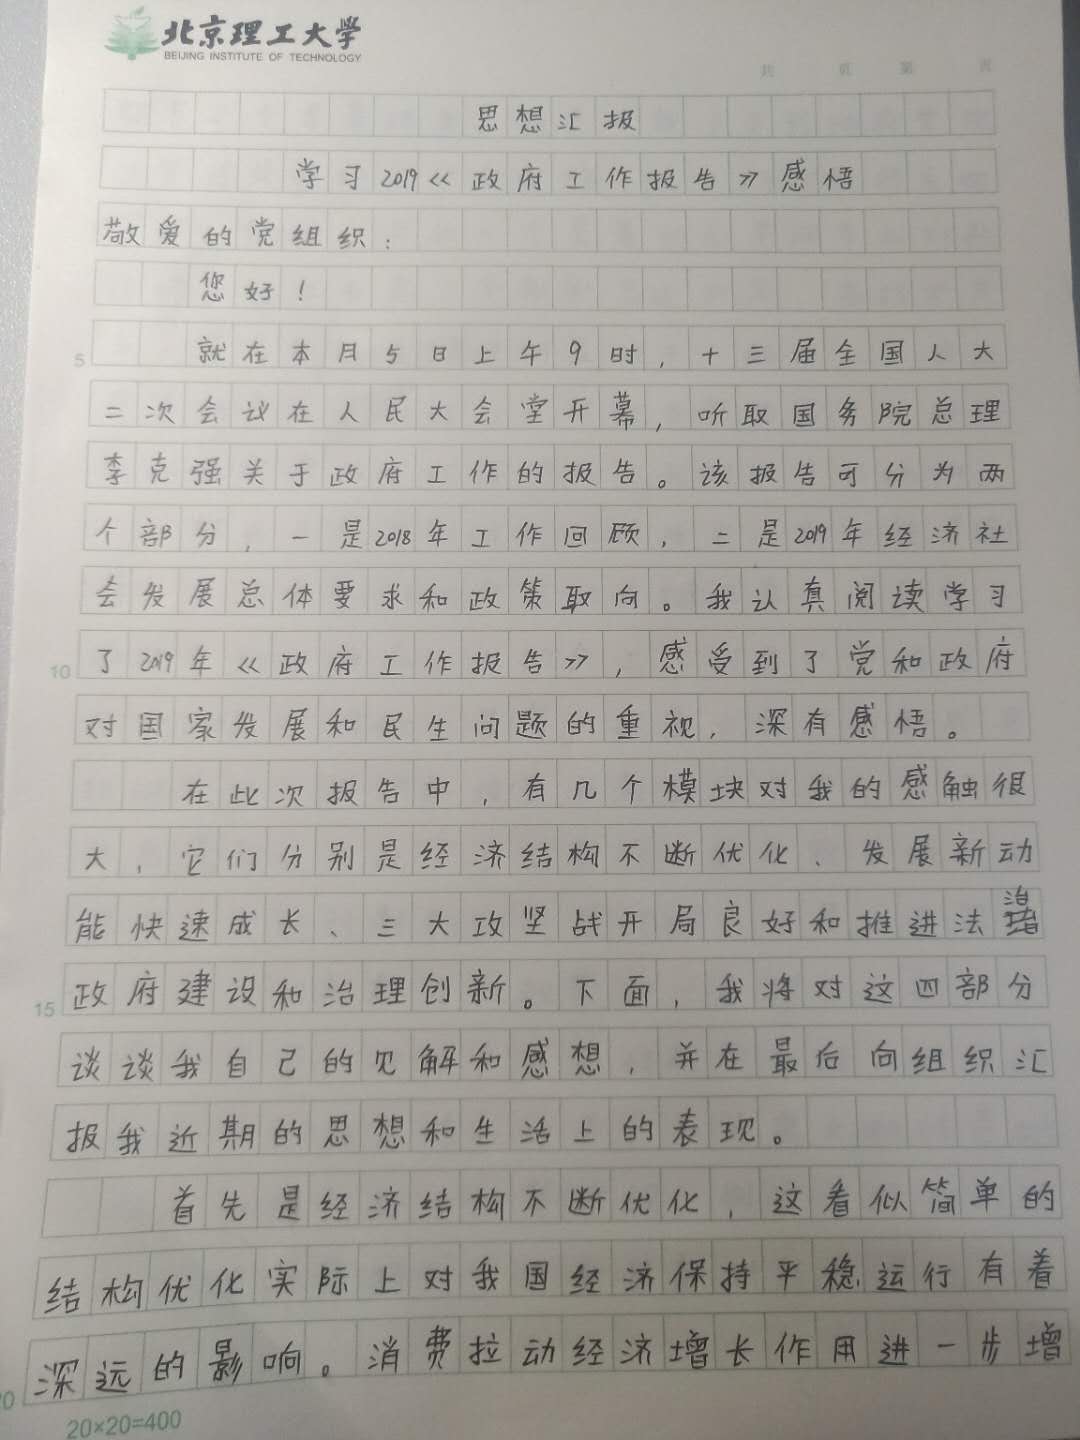 北京理工大学
BEIJING INSTITUTE OF TECHNOLOGY
共 页 第 页
思想汇报
学习2019《政府工作报告》感悟
敬爱的党组织：
您好！
5 就在本月5日上午9时，十三届全国人大
二次会议在人民大会堂开幕，听取国务院总理
李克强关于政府工作的报告。该报告可分为两
个部分，一是2018年工作回顾，二是2019年经济社
会发展总体要求和政策取向。我认真阅读学习
10 了2019年《政府工作报告》，感受到了党和政府
对国家发展和民生问题的重视，深有感悟。
在此次报告中，有几个模块对我的感触很
大，它们分别是经济结构不断优化、发展新动
能快速成长、三大攻坚战开局良好和推进法治
15 政府建设和治理创新。下面，我将对这四部分
谈谈我自己的见解和感想，并在最后向组织汇
报我近期的思想和生活上的表现。
首先是经济结构不断优化，这看似简单的
结构优化实际上对我国经济保持平稳运行有着
20 深远的影响。消费拉动经济增长作用进一步增
20×20=400